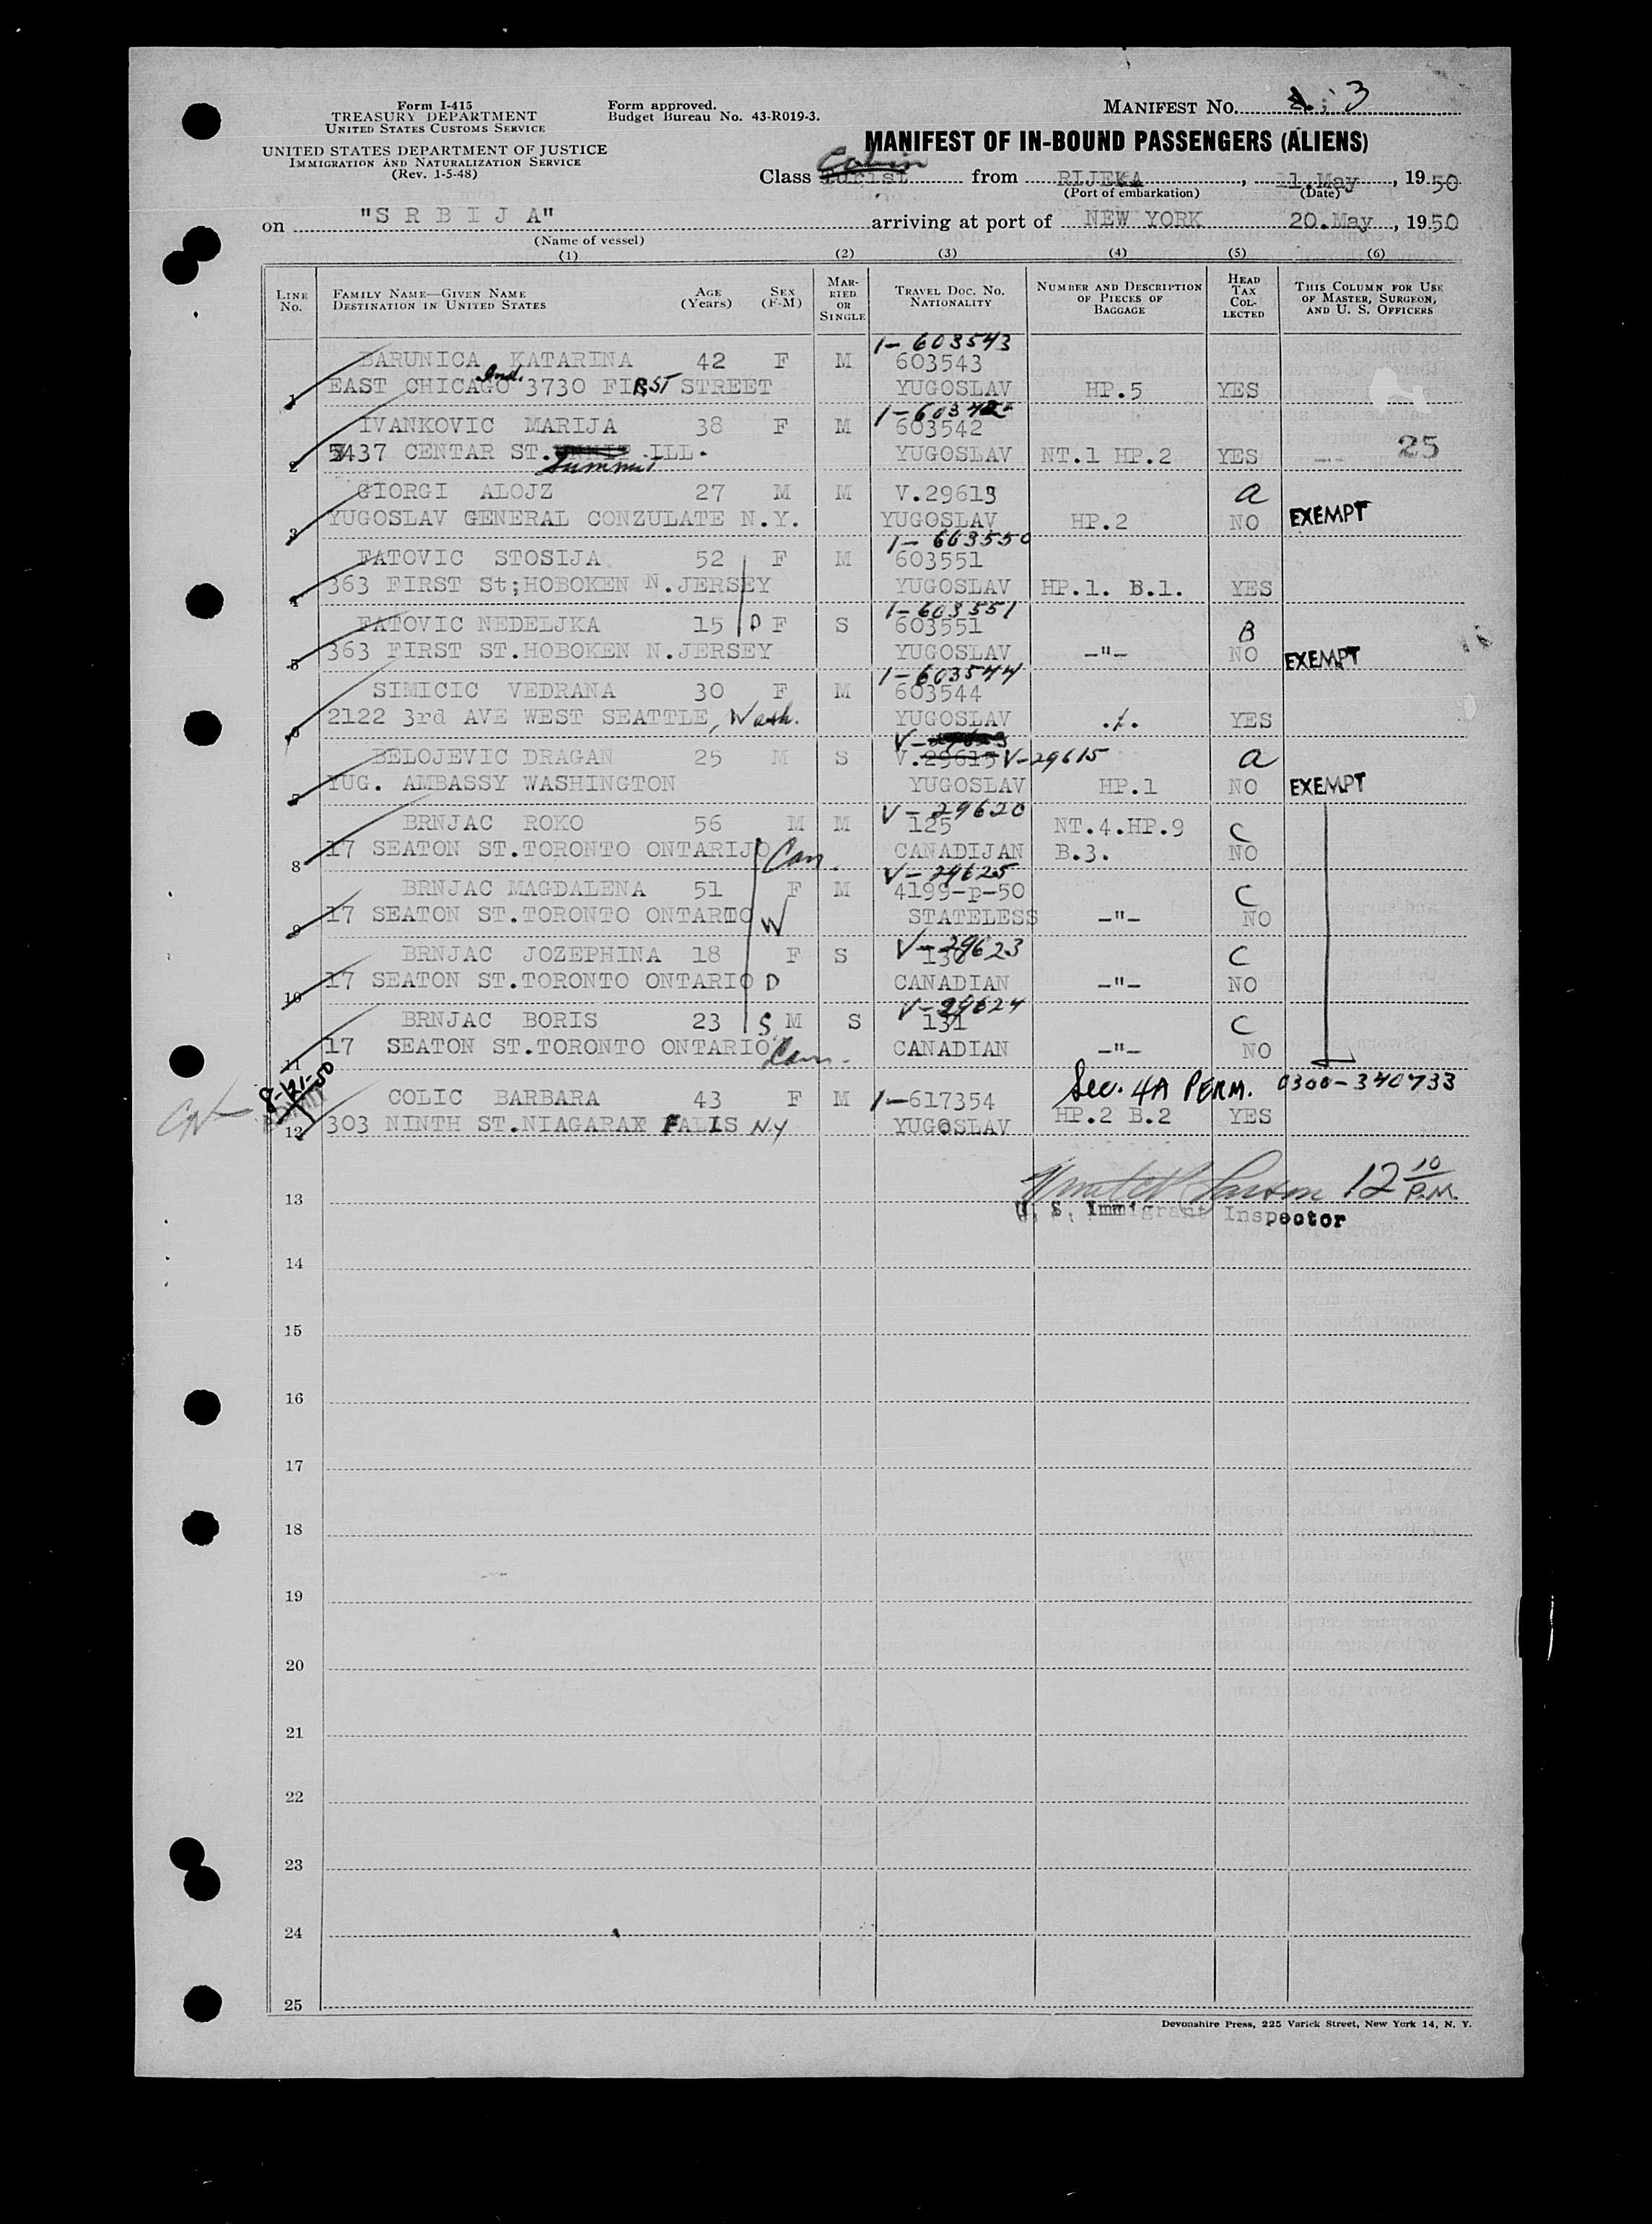 Form I-415
TREASURY DEPARTMENT
UNITED STATES CUSTOMS SERVICE
UNITED STATES DEPARTMENT OF JUSTICE
IMMIGRATION AND NATURALIZATION SERVICE
(Rev. 1-5-48)
Form approved.
Budget Bureau No. 43-R019-3.
MANIFEST NO. 3
MANIFEST OF IN-BOUND PASSENGERS (ALIENS)
Cabin
Class Turist from RIJEKA, 11.May, 1950
(Port of embarkation) (Date)
on "S R B I J A" arriving at port of NEW YORK 20.May, 1950
(Name of vessel)
(1) (2) (3) (4) (5) (6)
LINE NO. FAMILY NAME—GIVEN NAME DESTINATION IN UNITED STATES AGE (YEARS) SEX (F-M) MARRIED OR SINGLE TRAVEL DOC. NO. NATIONALITY NUMBER AND DESCRIPTION OF PIECES OF BAGGAGE HEAD TAX COLLECTED THIS COLUMN FOR USE OF MASTER, SURGEON, AND U. S. OFFICERS
1-603543
BARUNICA KATARINA 42 F M 603543
Ind.
1 EAST CHICAGO 3730 FIRST STREET YUGOSLAV HP.5 YES
1-603542
IVANKOVIC MARIJA 38 F M 603542
2 5437 CENTAR ST. ILL. YUGOSLAV NT.1 HP.2 YES 25
Summit
GIORGI ALOJZ 27 M M V.29613 a
3 YUGOSLAV GENERAL CONZULATE N.Y. YUGOSLAV HP.2 NO EXEMPT
1-603550
FATOVIC STOSIJA 52 F M 603551
4 363 FIRST St;HOBOKEN N.JERSEY YUGOSLAV HP.1. B.1. YES
1-603551
FATOVIC NEDELJKA 15 D F S 603551 B
5 363 FIRST ST.HOBOKEN N.JERSEY YUGOSLAV -"- NO EXEMPT
1-603544
SIMICIC VEDRANA 30 F M 603544
6 2122 3rd AVE WEST SEATTLE, Wash. YUGOSLAV ./. YES
BELOJEVIC DRAGAN 25 M S V.29615 V-29615 a
7 YUG. AMBASSY WASHINGTON YUGOSLAV HP.1 NO EXEMPT
V-29620
BRNJAC ROKO 56 M M 125 NT.4.HP.9 C
8 17 SEATON ST.TORONTO ONTARIJO Can. CANADIJAN B.3. NO
V-29625
BRNJAC MAGDALENA 51 F M 4199-p-50 C
9 17 SEATON ST.TORONTO ONTARIO W STATELESS -"- NO
V-29623
BRNJAC JOZEPHINA 18 F S 130 C
10 17 SEATON ST.TORONTO ONTARIO D CANADIAN -"- NO
V-29624
BRNJAC BORIS 23 S M S 131 C
11 17 SEATON ST.TORONTO ONTARIO Can. CANADIAN -"- NO
8-21-50 Sec. 4A PERM. 0300-340733
COLIC BARBARA 43 F M 1-617354
12 303 NINTH ST.NIAGARAX FALLS N.Y YUGOSLAV HP.2 B.2 YES
12 10 P.M.
13 U. S. Immigrant Inspector
14
15
16
17
18
19
20
21
22
23
24
25
Devonshire Press, 225 Varick Street, New York 14, N. Y.